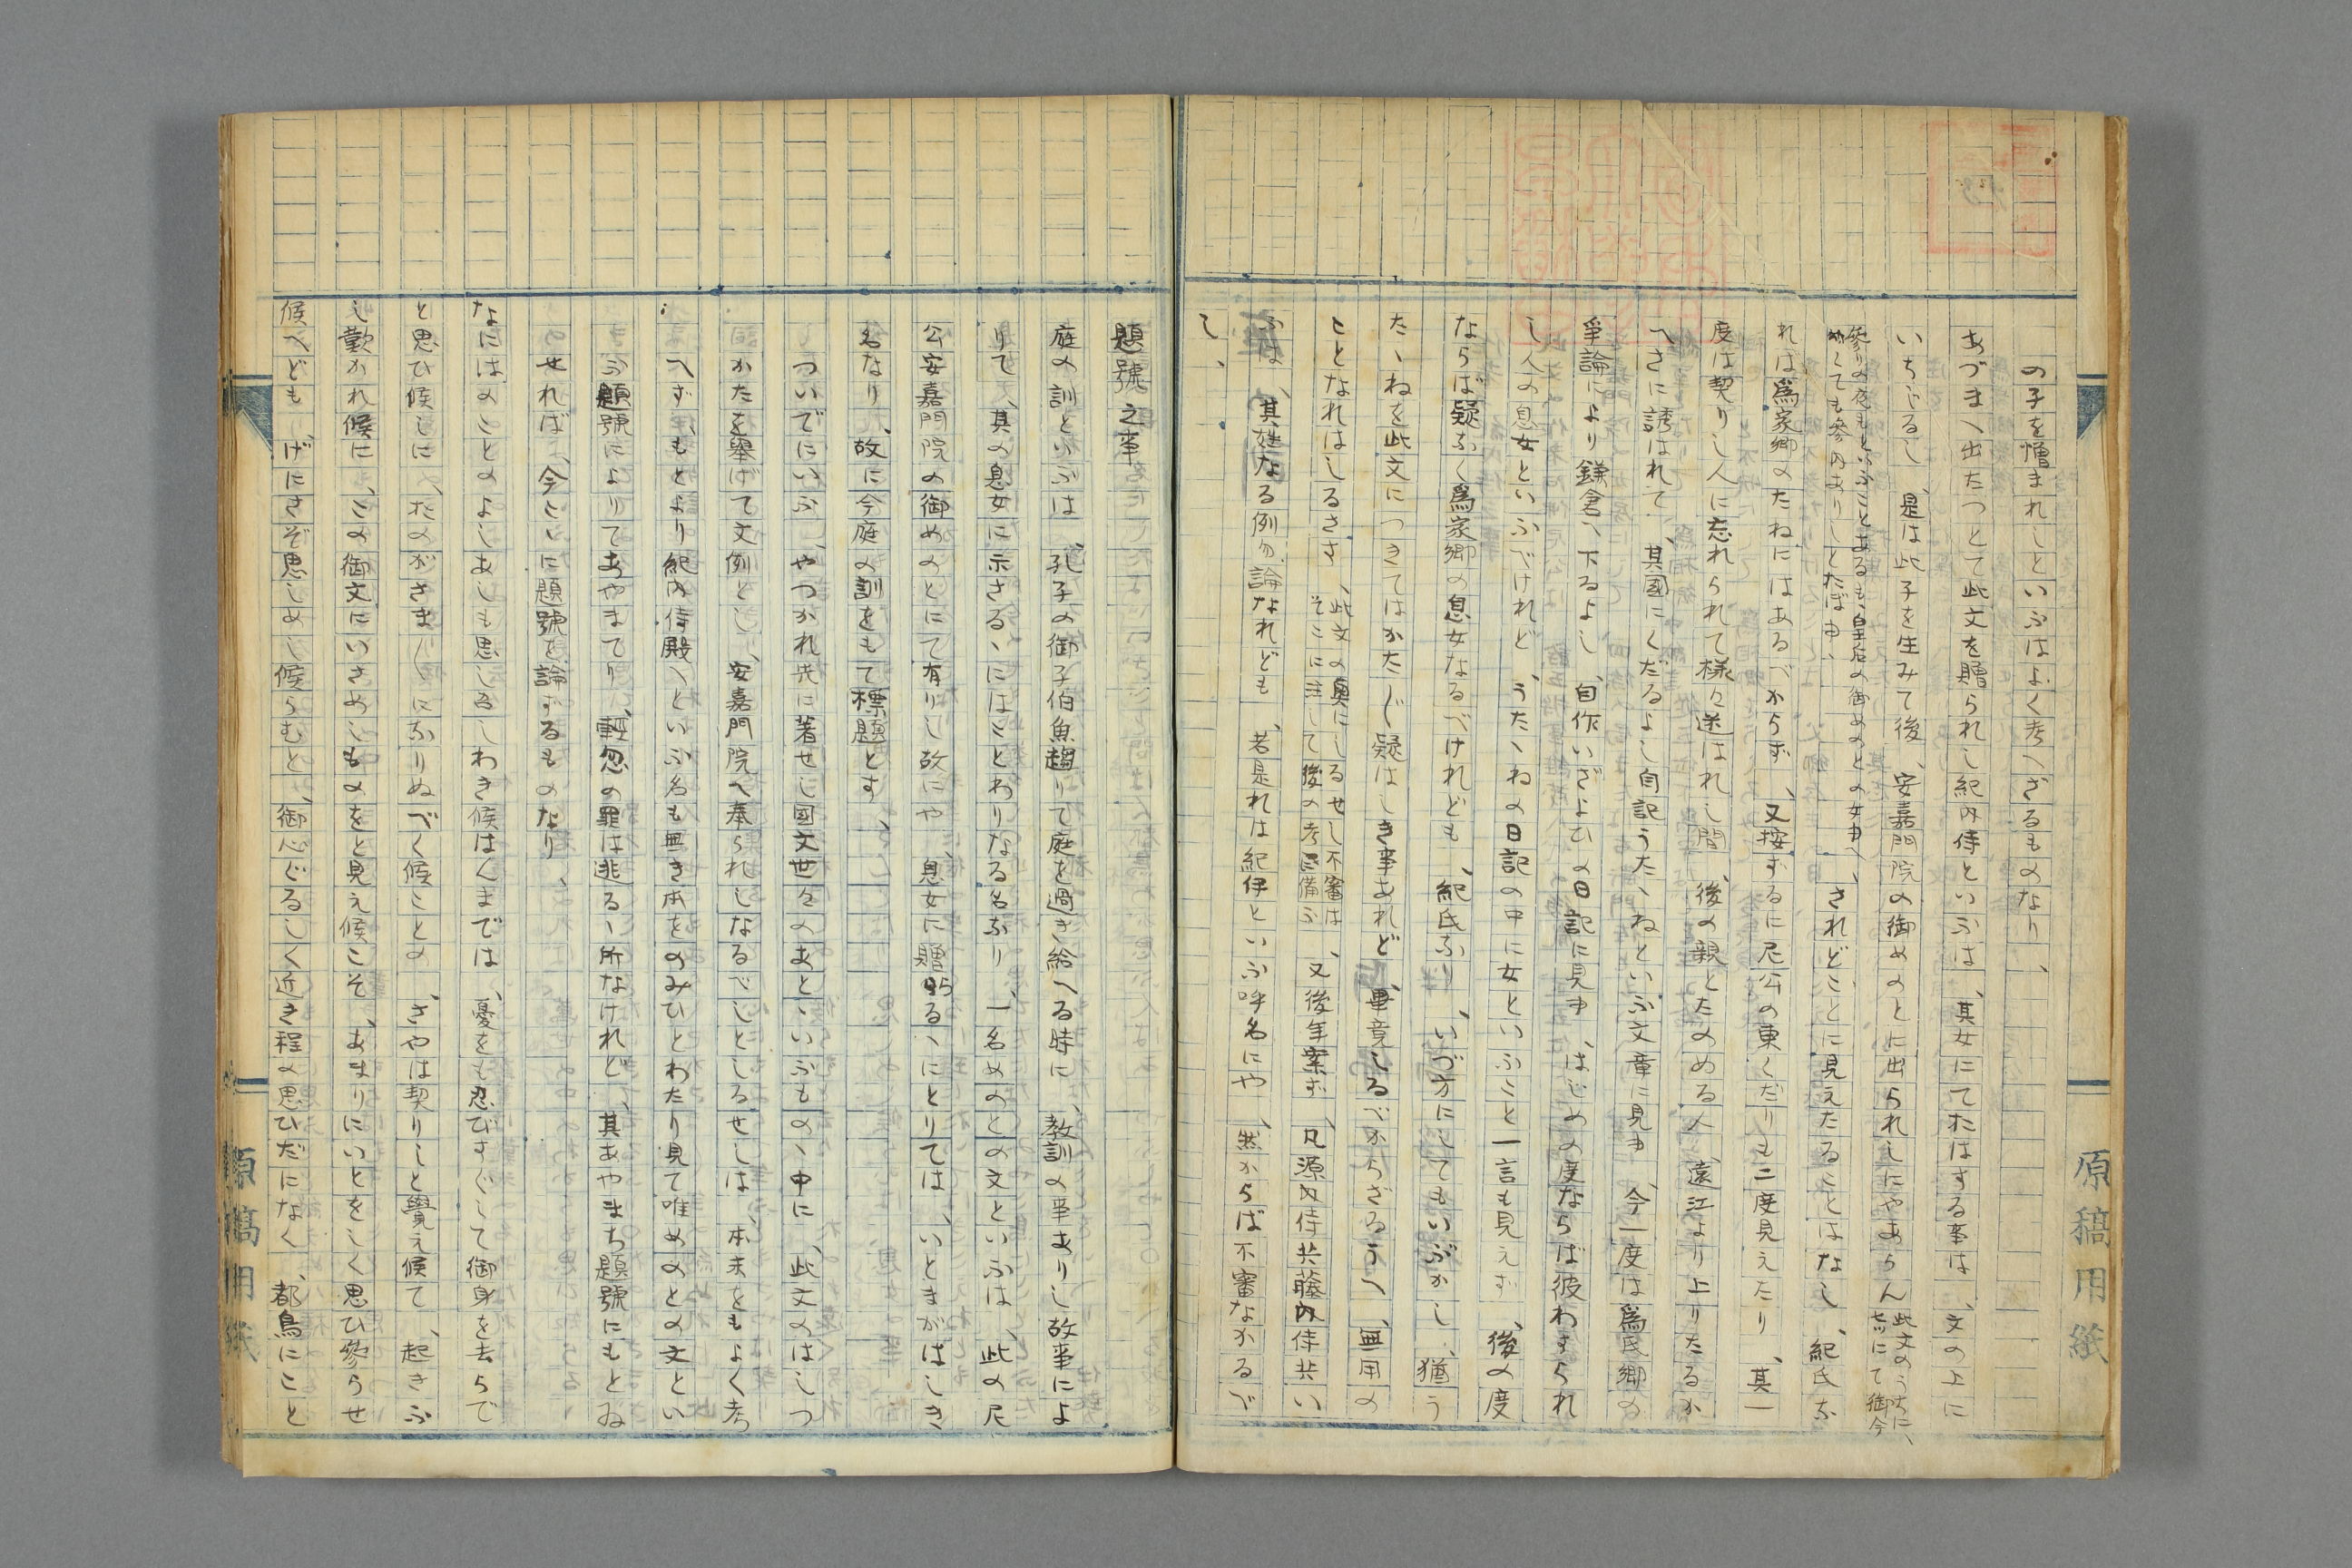 の子を憎まれしといふはよく考へざるものなり、
あづまへ出たつとて此文を贈られし紀内侍といふは、其女にてたはする事は、文の上に
いちじるし、是は此子を生みて後、安嘉門院の御めのとに出られしにやあらん
此文のうちに、
にて御今
參りの夜もといふことあるも、皇后の御めのとの女中へ
めしても參内ありしとたば申、
、されどことに見えたることはなし、紀氏な
れは爲家卿のたねにはあるべからず、又按ずるに尼公の東くだりも二度見えたり、其一
度は契りし人に忘れられて樣々迷はれし間、後の親とたのめる人、遠江より上りたるか
へさに誘はれて、其國にくだるよし自記うたゝねといふ文章に見ゆ、今一度は爲氏卿の
爭論により鎌倉へ下るよし、自作いざよひの日記に見ゆ、はじめの度ならば彼わすられ
し人の息女といふべけれど、うたゝねの日記の中に女といふこと一言も見えず、後の度
ならば疑なく爲家卿の息女なるべけれども、紀氏なり、いづ方にしてもいぶかし、猶う
たゝねを此文につきてはかたじ疑はしき事あれど、畢竟しるべからざるうへ、無用の
ことなれはしるさす、
此文の奧にしるせし不審は
そこに注して後の考に備ふ
、又後年案ず、凡源内侍共藤内侍共い
ふは、其姓なる例勿論なれども、若是れは紀伊といふ呼名にや、然からば不審なかるべ
し、
題號之事
庭の訓といふは、孔子の御子伯魚趨りて庭を過き給へる時に、教訓の事ありし故事によ
りて、其の息女に示さるゝにはことわりなる名なり、一名めのとの文といふは、此の尼
公安嘉門院の御めのとにて有りし故にや、息女に贈らるゝにとりては、いとまがはしき
名なり、故に今庭の訓をもて標題とす、
ついでにいふ、やつかれ先に著せし国文世々のあとゝいふものゝ中に、此文のはしつ
かたを擧げて文例とし、安嘉門院へ奉られしなるべしとしるせしは、本末をもよく考
へず、もとより紀内侍殿へといふ名も無き本をのみひとわたり見て唯めのとの文とい
ふ題號によりてあやまてり、輕忽の罪は逃るゝ所なけれど、其あやまち題號にもとゐ
せれば、今こゝに題號を論ずるものなり、
なにはのことのよしあしも思しわき候はんまでは、憂をも忍びすぐして御身を去らで
と思ひ候しに、たのがさま〱になりぬべく候ことの、さやは契りしと覺え候て、起きふ
し歎かれ候に、この御文にいさめしものをと見え候こそ、あまりにいとをしく思ひ參らせ
候へども、げにさぞ思しめし候らむと、御心ぐるしく近き程の思ひだになく、都鳥にこと
原稿用紙
原稿用紙